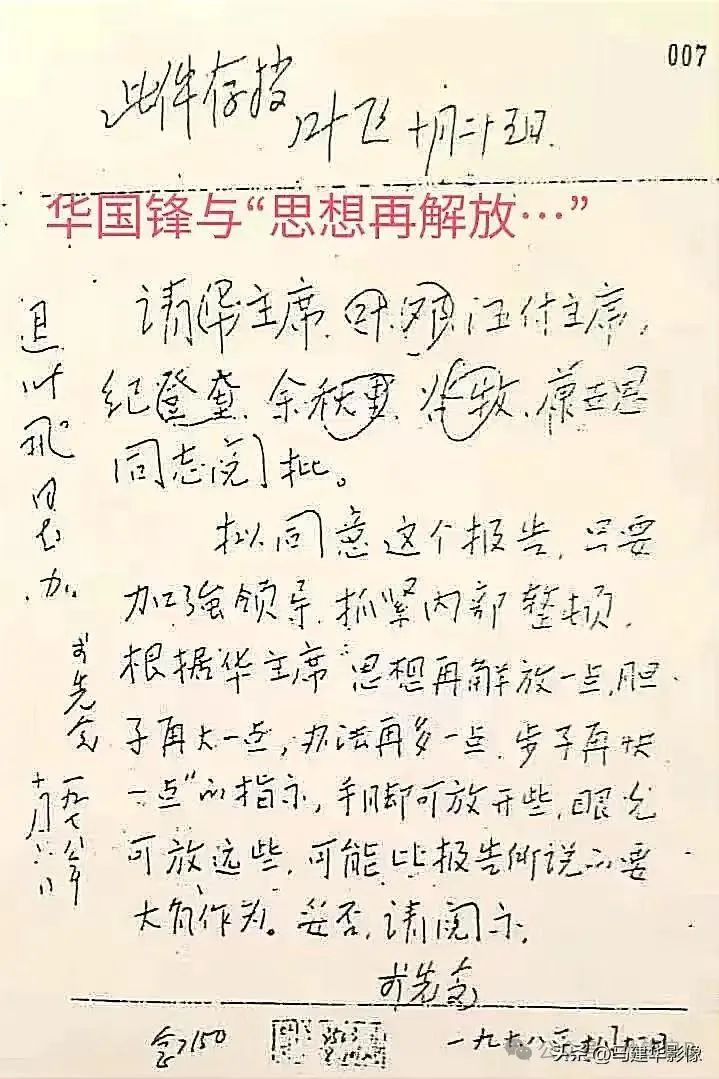 007
此件存档
叶飞 十月二十五日
华国锋与“思想再解放…”
请华主席、叶、邓、汪付主席,
纪登奎、余秋里、谷牧、康世恩
同志阅批。
拟同意这个报告,只要
加强领导、抓紧内部整顿,
根据华主席“思想再解放一点,胆
子再大一点,办法再多一点,步子再快
一点”的指示,手脚可放开些,眼光
可放远些,可能比报告所说的要
大有作为。妥否,请阅示。
李先念
退叶飞同志办。
李先念
一九七八年
十月
一九七八年十月十二日
头条@马建华影像